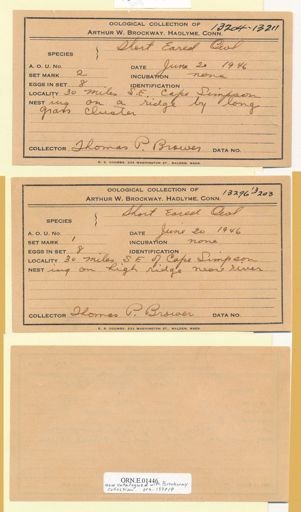 OOLOGICAL COLLECTION OF 13204-13211
ARTHUR W. BROCKWAY, HADLYME, CONN.
SPECIES } Short Eared Owl
A. O. U. No. DATE June 20 1946
SET MARK 2 INCUBATION none
EGGS IN SET 8 IDENTIFICATION
LOCALITY 30 miles S.E. Cape Simpson
NEST ing on a ridge by long
grass cluster
COLLECTOR Thomas P. Brower DATA NO.
E. S. COOMBS, 233 WASHINGTON ST., MALDEN, MASS.
OOLOGICAL COLLECTION OF 13296 13203
ARTHUR W. BROCKWAY, HADLYME, CONN.
SPECIES } Short Eared Owl
A. O. U. No. DATE June 20 1946
SET MARK 1 INCUBATION none
EGGS IN SET 8 IDENTIFICATION
LOCALITY 30 miles S.E. of Cape Simpson
NEST ing on high ridge near river
COLLECTOR Thomas P. Brower DATA NO.
E. S. COOMBS, 233 WASHINGTON ST., MALDEN, MASS.
ORN.E.01446
now catalogued with Brockway
collection